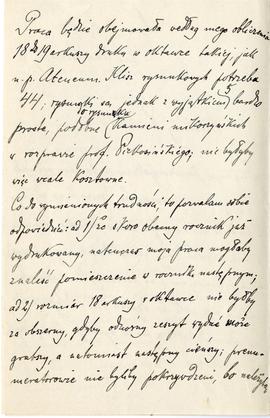 Praca będzie obejmowała według mego obliczenia
18 do 19 arkuszy druku w oktawce takiej, jak
n. p. Ateneum. Klisz rysunkowych potrzeba
44; rysunki są jednak z wyjątkiem 5 bardzo
proste, podobne do rysunków kamieni mikorzyńskich
w rozprawie prof. Piekosińskiego; nie byłyby
więc wcale kosztowne.
Co do wymienionych trudności, to pozwalam sobie
odpowiedzieć: ad 1) że skoro obecny rocznik już
wydrukowany, natenczas moja praca mogłaby
znaleść pomieszczenie w roczniku następnym;
ad 2) rozmiar 18 arkuszy w oktawce nie byłby
za obszerny, gdyby odnośny zeszyt wydać może
grubszy, a natomiast następny cieńszy; prenu-
meratorowie nie byliby pokrzywdzeni, bo należytą